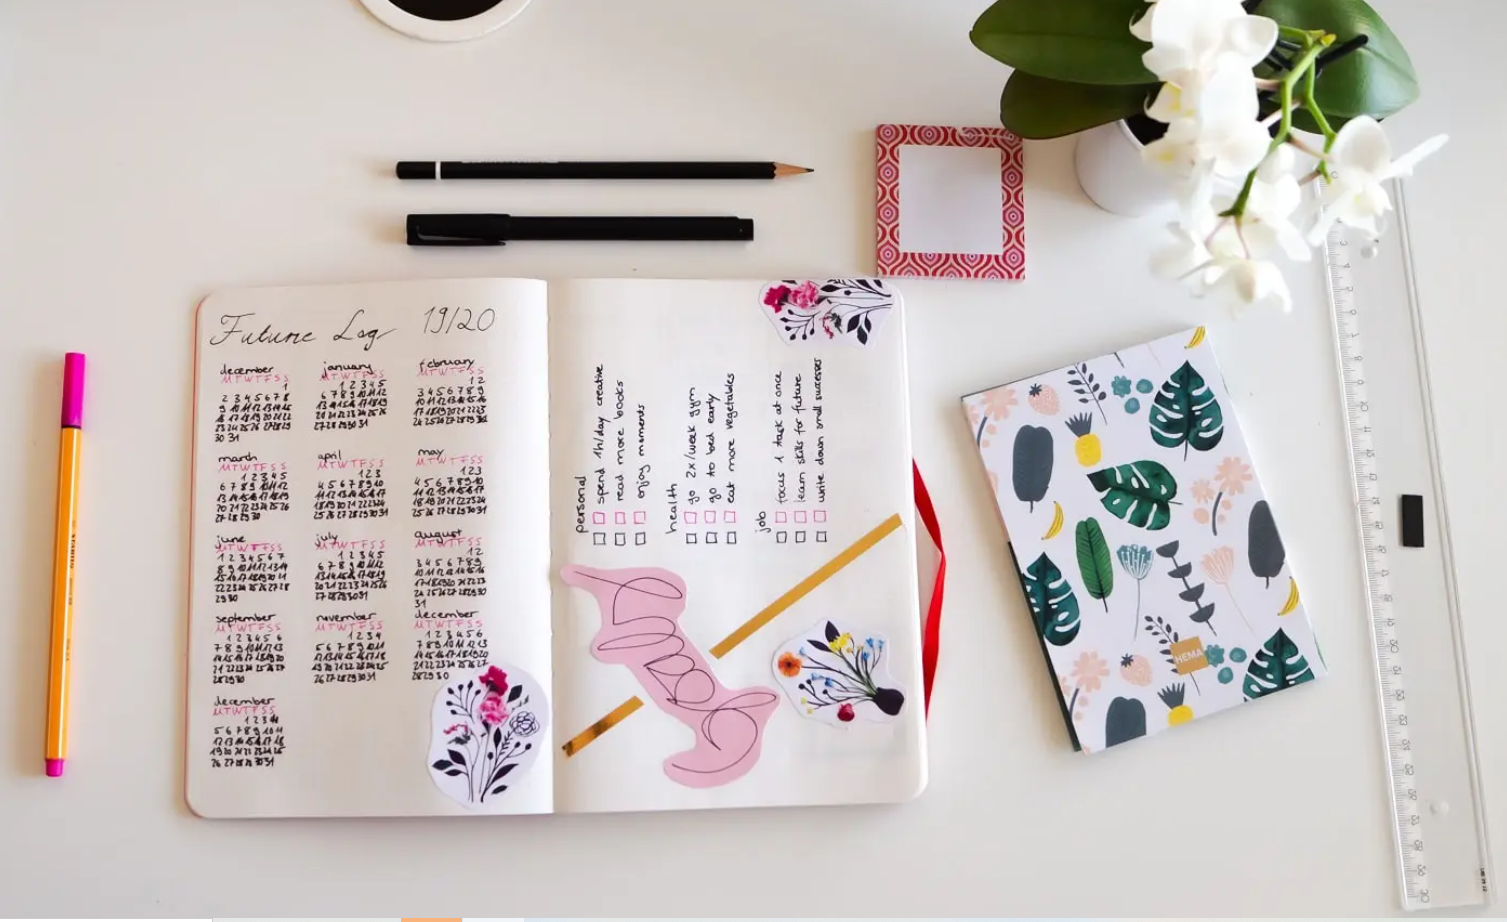 Future Log 19/20
december
M T W T F S S
1
2 3 4 5 6 7 8
9 10 11 12 13 14 15
16 17 18 19 20 21 22
23 24 25 26 27 28 29
30 31
january
M T W T F S S
1 2 3 4 5
6 7 8 9 10 11 12
13 14 15 16 17 18 19
20 21 22 23 24 25 26
27 28 29 30 31
february
M T W T F S S
1 2
3 4 5 6 7 8 9
10 11 12 13 14 15 16
17 18 19 20 21 22 23
24 25 26 27 28 29
march
M T W T F S S
1 2 3 4 5
6 7 8 9 10 11 12
13 14 15 16 17 18 19
20 21 22 23 24 25 26
27 28 29 30
april
M T W T F S S
1 2 3
4 5 6 7 8 9 10
11 12 13 14 15 16 17
18 19 20 21 22 23 24
25 26 27 28 29 30 31
may
M T W T F S S
1 2 3
4 5 6 7 8 9 10
11 12 13 14 15 16 17
18 19 20 21 22 23 24
25 26 27 28 29 30 31
june
M T W T F S S
1 2 3 4 5 6 7
8 9 10 11 12 13 14
15 16 17 18 19 20 21
22 23 24 25 26 27 28
29 30
july
M T W T F S S
1 2 3 4 5
6 7 8 9 10 11 12
13 14 15 16 17 18 19
20 21 22 23 24 25 26
27 28 29 30 31
august
M T W T F S S
1 2
3 4 5 6 7 8 9
10 11 12 13 14 15 16
17 18 19 20 21 22 23
24 25 26 27 28 29 30
31
september
M T W T F S S
1 2 3 4 5 6
7 8 9 10 11 12 13
14 15 16 17 18 19 20
21 22 23 24 25 26 27
28 29 30
november
M T W T F S S
1 2 3 4
5 6 7 8 9 10 11
12 13 14 15 16 17 18
19 20 21 22 23 24 25
26 27 28 29 30 31
december
M T W T F S S
1 2 3 4 5 6
7 8 9 10 11 12 13
14 15 16 17 18 19 20
21 22 23 24 25 26 27
28 29 30
december
M T W T F S S
1 2 3 4
5 6 7 8 9 10 11
12 13 14 15 16 17 18
19 20 21 22 23 24 25
26 27 28 29 30 31
personal
spend 1h/day creative
read more books
enjoy moments
health
go 2x/week gym
go to bed early
eat more vegetables
job
focus 1 task at once
learn skills for future
write down small successes
HEMA